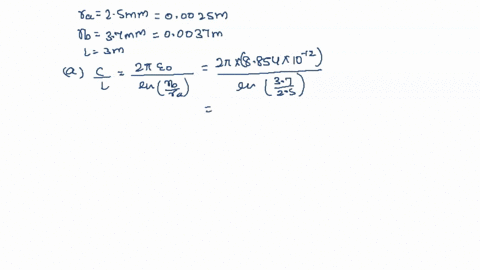 ra = 2.5mm = 0.0025m
rb = 3.7mm = 0.0037m
L = 3m
(a) C/L = 2π ε0 / ln(rb/ra) = 2π×(8.854×10^-12) / ln(3.7/2.5)
=